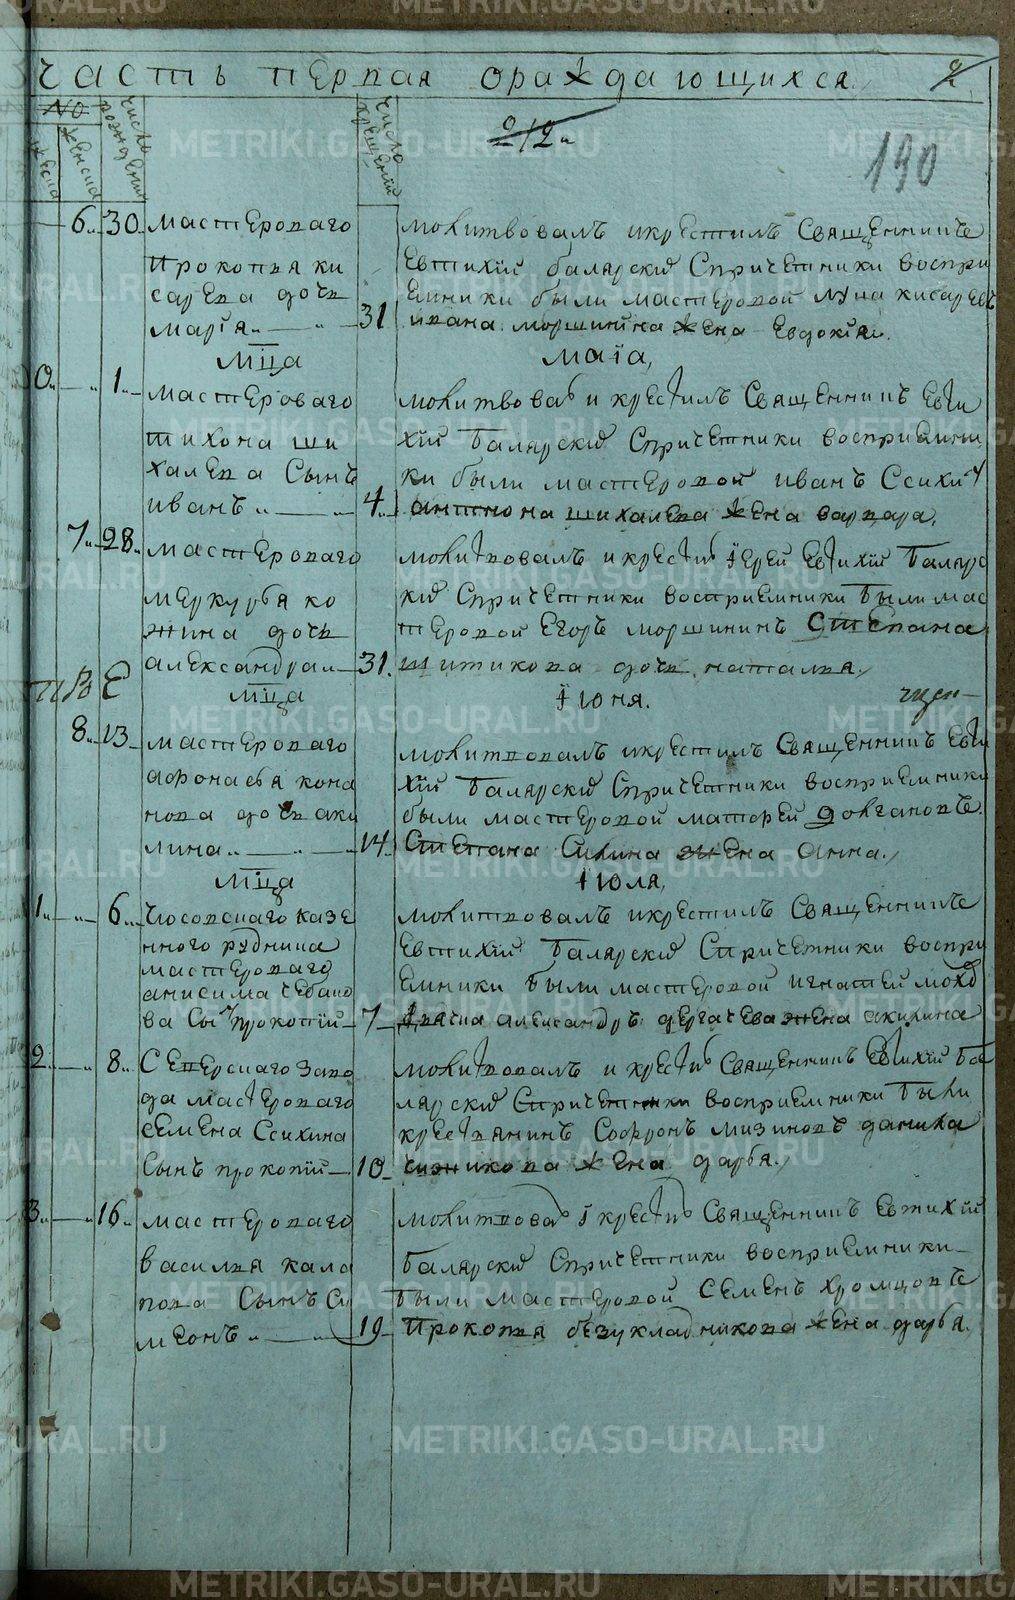 часть первая ораждающихся
2
№
мужеска
женска
число рождени
число крещений
212
190
6 30 мастероваго
Прокопья ки
сарева дочь
марїя 31
молитвовалъ икрестилъ Священникъ
Евтихїй балярскїй Спричетники воспри
Емники были мастеровой лука кисаревъ
ивана моршинина жена Евдокїя
мца маїа,
0 1 мастероваго
тихона ши
халева Сынъ
иванъ 4
молитвовал и крестилъ Священникъ Евти
хїй Балярскїй Спричетники восприемни
ки были мастеровой иванъ Ссихин
антиона шихалева жена варвара,
7 28 мастероваго
меркурья ко
жина дочь
александра 31
молитвовалъ и крестил їерей Евтихїй Балярс
кїй Спричетники восприемники Были мас
теровой Егоръ моршининъ Степана
шитикова дочь наталья
мца Їюня.
8 13 мастероваго
афонасья кона
нова дочь аку
лина 14
молитвовалъ икрестилъ Священникъ Евти
хїй Балярскїй Спричетники восприемники
были мастеровой матфей довгановъ
Степана Силина жена Анна
мца Їюля,
1 6 казе
нного рудника
мастероваго
анисима
ва Сын прокопїй 7
молитвовалъ икрестилъ Священникъ
Евтихїй Балярскїй Спричетники воспри
Емники Были мастеровой игнатей
александръ дергачева жена акилина
2 8 Северскаго заво
да мастероваго
семена Ссихина
Сынъ прокопїй 10
молитвовалъ и крестил Священникъ Евтихїй Ба
лярскїй Спричетники восприемники Были
крестянинъ Софронъ мизиновъ данила
жена дарья
3 16 мастероваго
василья кала
пова Сынъ Си
меонъ 19
молитвовал ї крестил Священникъ Евтихїй
Балярскїй Спричетники восприемники
Были мастеровой Семенъ хромцовъ
Прокопья безукладникова жена дарья.